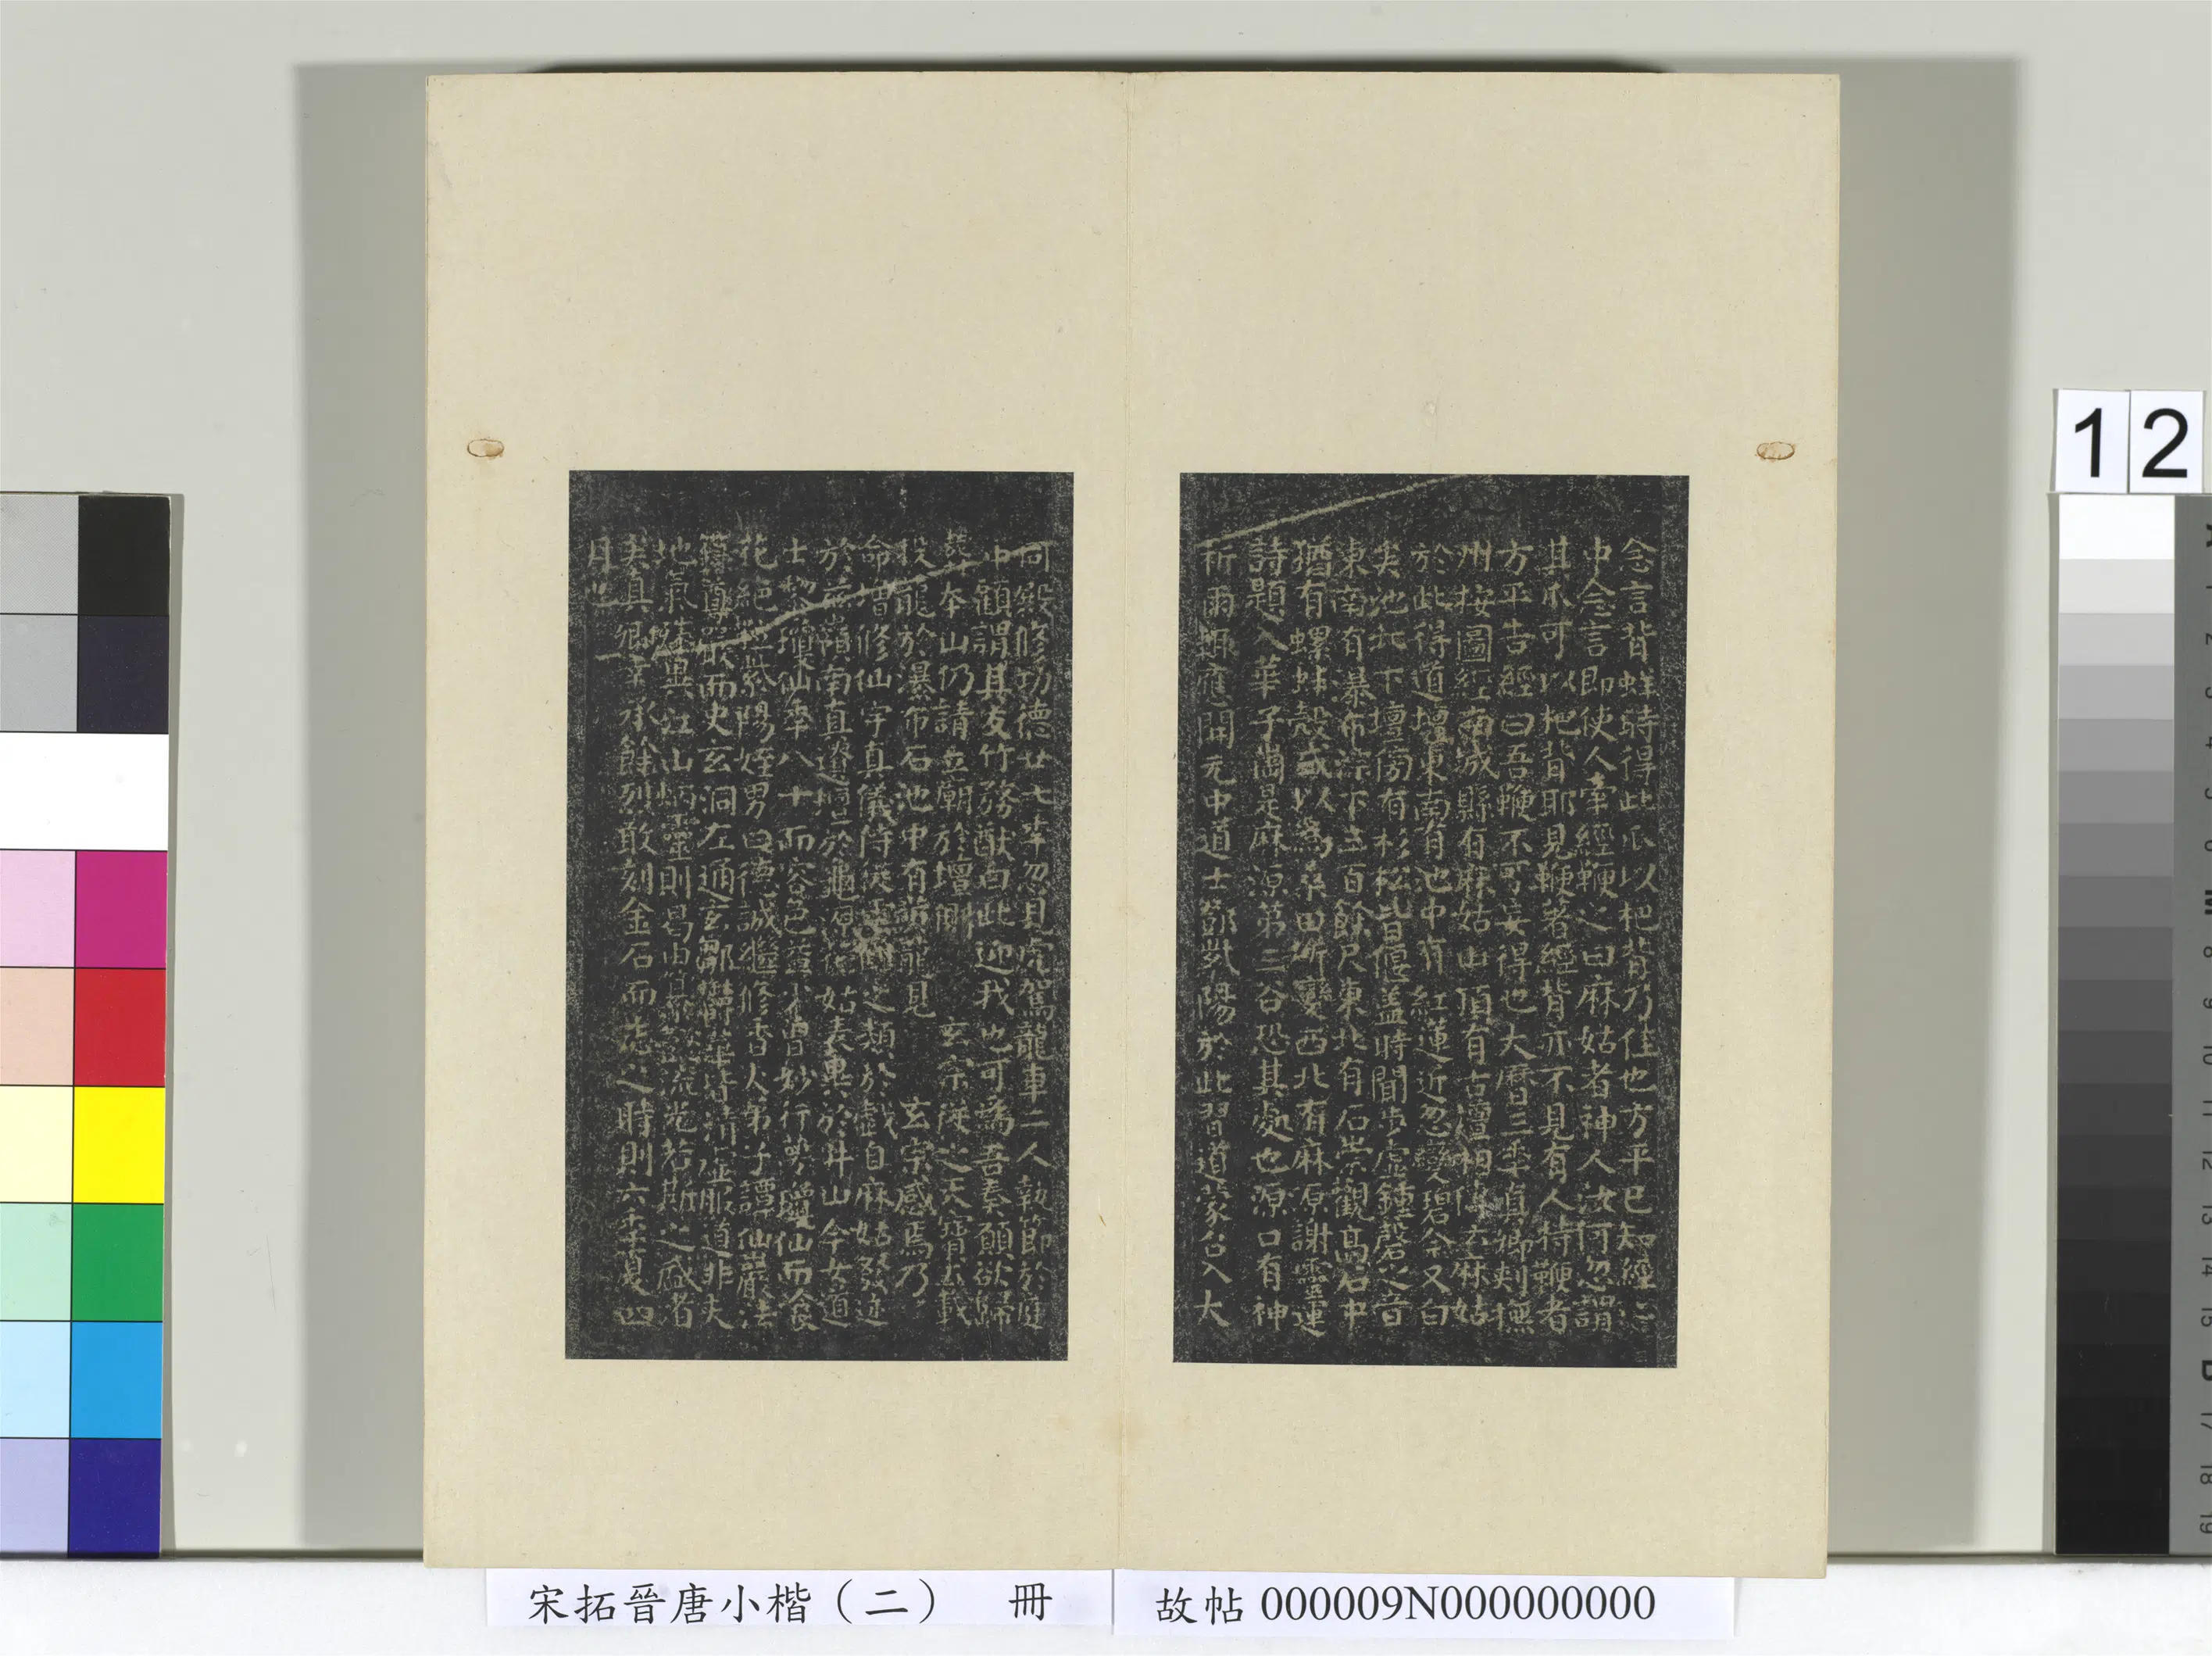 念言背蛘時得此爪以杷背乃佳也方平已知經心
中念言即使人牽經鞭之曰麻姑者神人汝何忽謂
其爪可以杷背耶見鞭著經背亦不見有人持鞭者
方平告經曰吾鞭不可妄得也大曆三年真卿刺撫
州按圖經南城縣有麻姑山頂有古壇相傳云麻姑
於此得道壇東南有池中有紅蓮近忽變碧今又白
矣池北下壇傍有杉松皆偃蓋時聞步虛鍾磬之音
東南有瀑布淙下三百餘尺東北有石崇觀高石中
猶有螺蚌殼或以為桑田所變西北有麻源謝靈運
詩題入華子崗是麻源第三谷恐其處也源口有神
祈雨輒應開元中道士鄧紫陽於此習道蒙召入大
同殿修功德廿七年忽見虎駕龍車二人執節於庭
中顧謂其友竹務猷曰此迎我也可為吾奏願欲歸
葬本山仍請立廟於壇側 玄宗從之天寶五載
投龍於瀑布石池中有黃龍見 玄宗感焉乃
命增修仙宇真儀侍從雲鶴之類於戲自麻姑發迹
於茲嶺南真遺壇於龜源花姑表異於井山今女道
士黎瓊仙年八十而容色益少曾妙行夢瓊仙而飡
花絕粒紫陽姪男曰德誠繼修香火弟子譚仙巖法
籙尊嚴而史玄洞左通玄鄒鬱華皆清虛服道非夫
地氣殊異江山炳靈則曷由纂懿流光若斯之盛者
矣真卿幸承餘烈敢刻金石而志之時則六年夏四
月也
12
宋拓晉唐小楷（二） 冊
故帖 000009N000000000